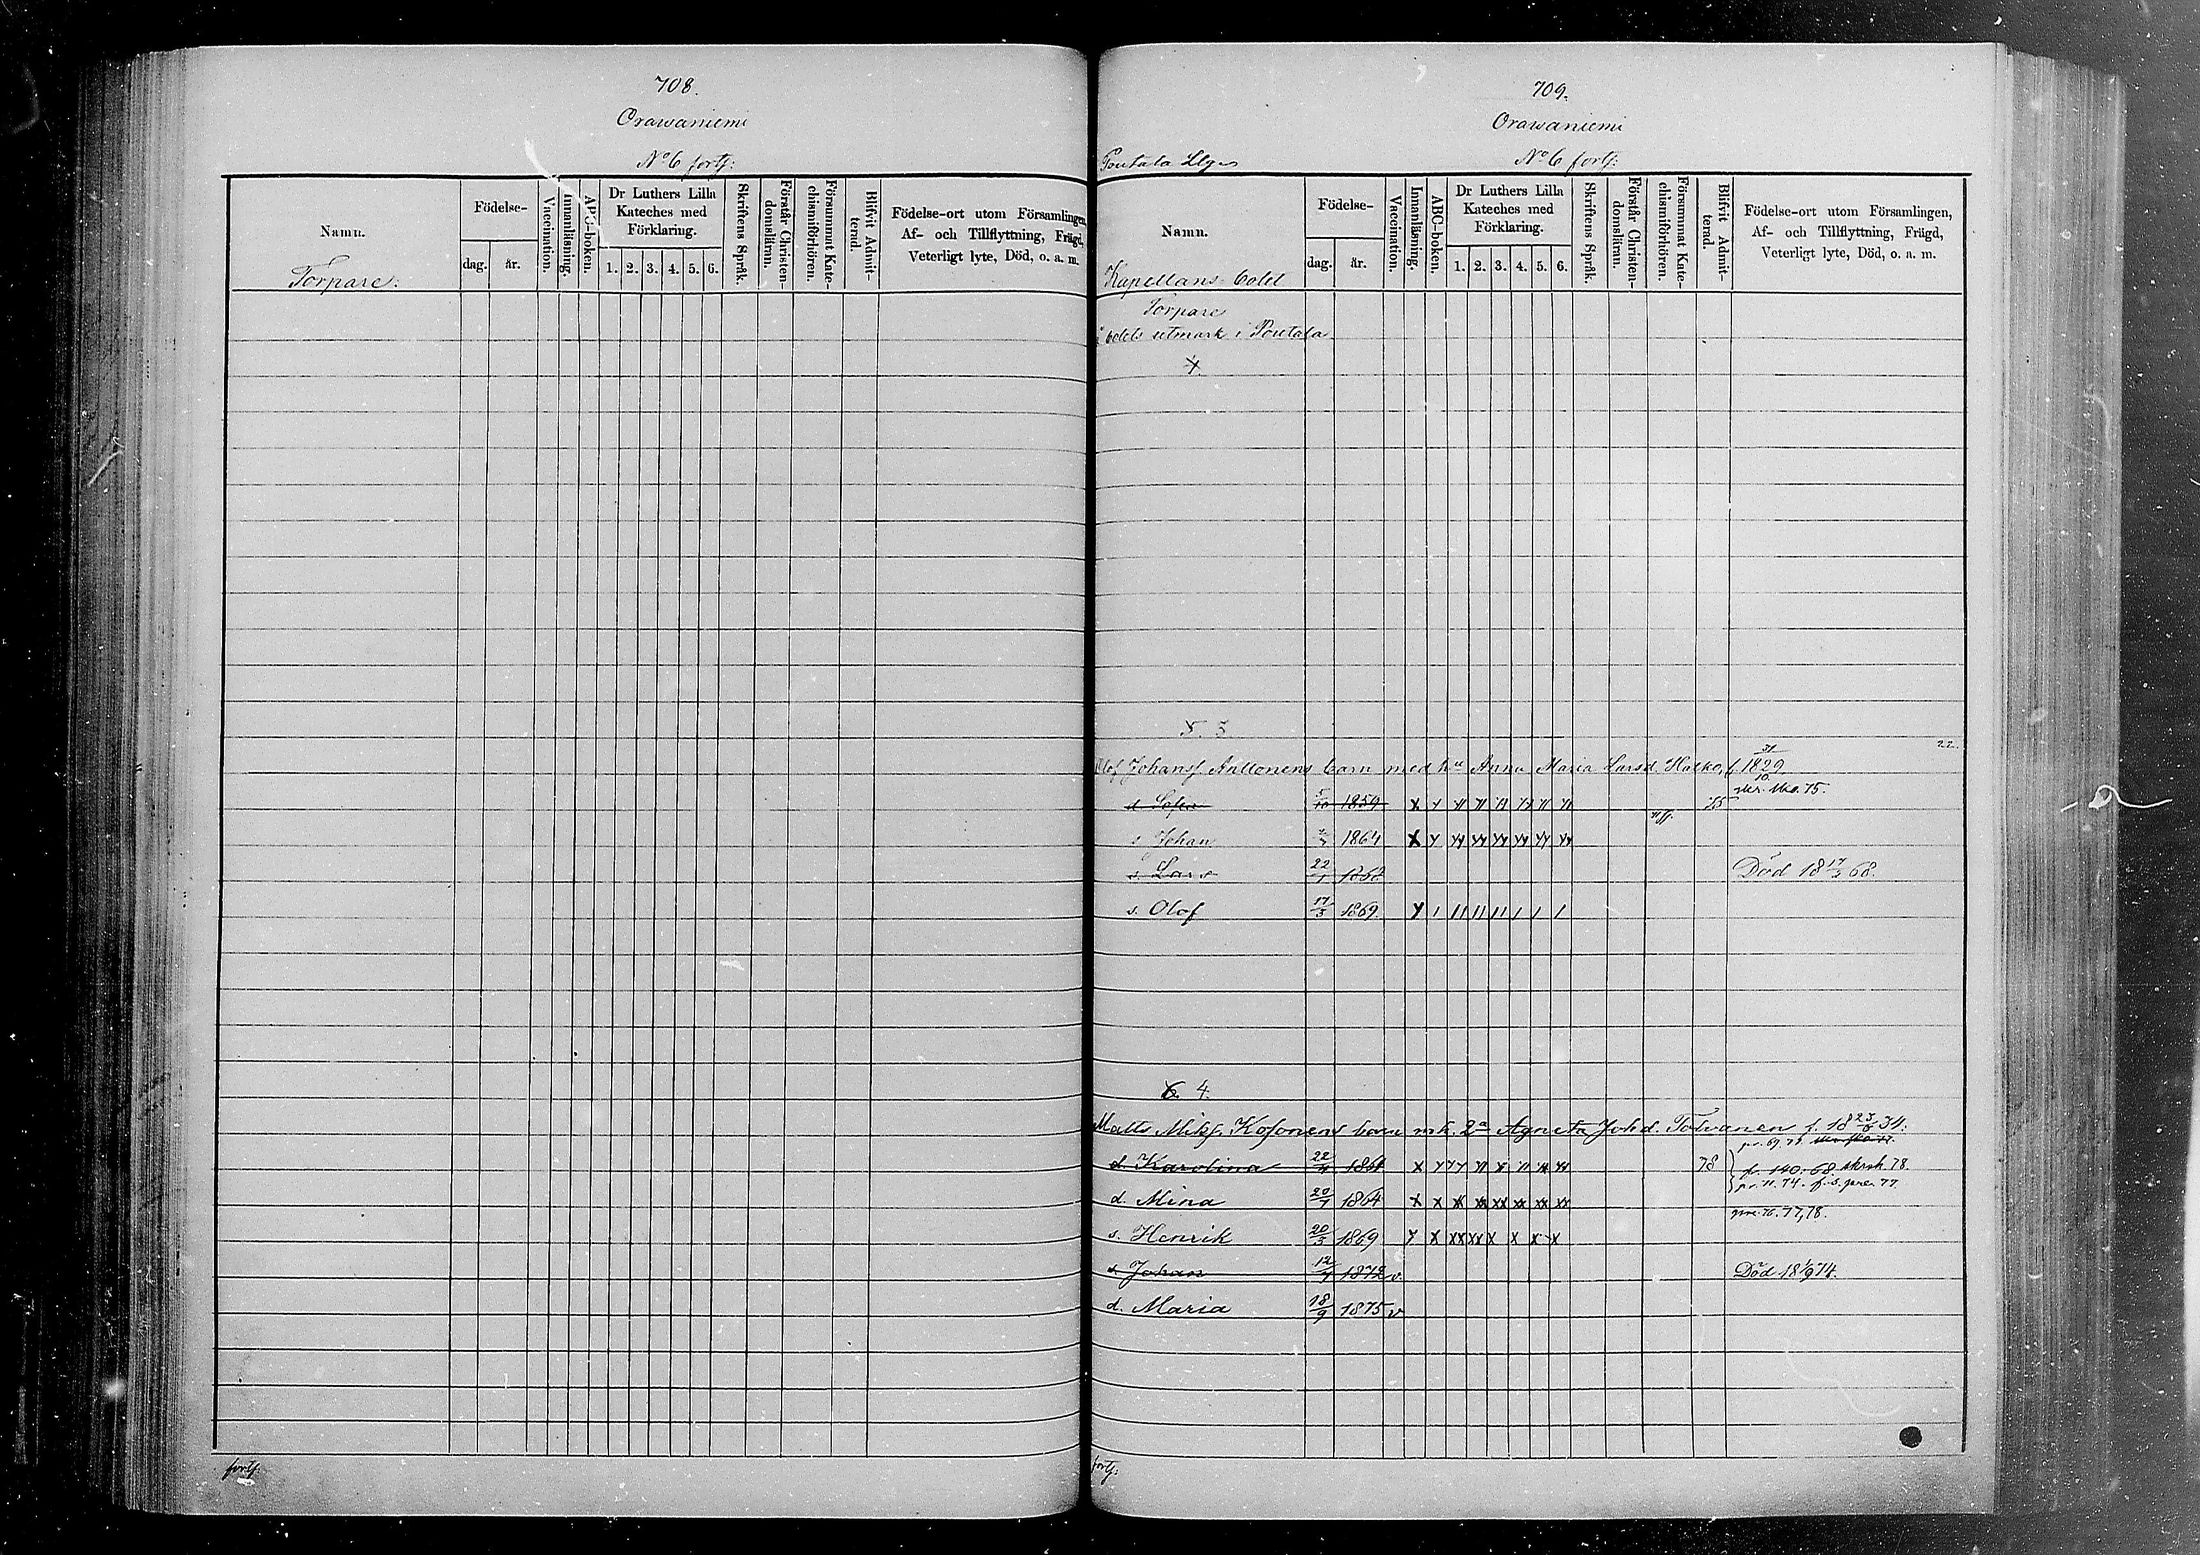 708.
Orawaniemi
No 6 fortf:
Namn.
Torpare:
Födelse-
dag.
år.
Vaccination.
Innanläsning.
ABC-boken.
Dr Luthers Lilla
Kateches med
Förklaring.
1. 2. 3. 4. 5. 6.
Skriftens Språk.
Förstår Christen-
domsläran.
Försummat Kate-
chismiförhören.
Blifvit Admit-
terad.
Födelse-ort utom Församlingen,
Af- och Tillflyttning, Frägd,
Veterligt lyte, Död, o. a. m.
fortf.
709.
Orawaniemi
Poutala
No 6 fortf:
Namn.
Kapellans-bolet
Födelse-
dag.
år.
Vaccination.
Innanläsning.
ABC-boken.
Dr Luthers Lilla
Kateches med
Förklaring.
1. 2. 3. 4. 5. 6.
Skriftens Språk.
Förstår Christen-
domsläran.
Försummat Kate-
chismiförhören.
Blifvit Admit-
terad.
Födelse-ort utom Församlingen,
Af- och Tillflyttning, Frägd,
Veterligt lyte, Död, o. a. m.
Torpare
bolets utmark i Poutala
4
5. 3
22.
Olof Johansf. Anttonens barn med hu Anna Maria Larsd. f. 31/10 1829
d. Sofia 5/10 1859 75
s. Johan 1864
s. Lars 22/1 1867 Död 18 68.
s. Olof 17/3 1869
6. 4.
Matts Mikf. Kosonens barn m. h. 2a Agneta Johd. Tolvanen f. 18 23/6 34.
d. Karolina 22/4 1861 78 p. 140. 68. skrsk. 78.
d. Mina 20/1 1864
s. Henrik 20/3 1869
s. Johan 12/4 1872 v. Död 18 74.
d. Maria 18/9 1875 v
fortf: